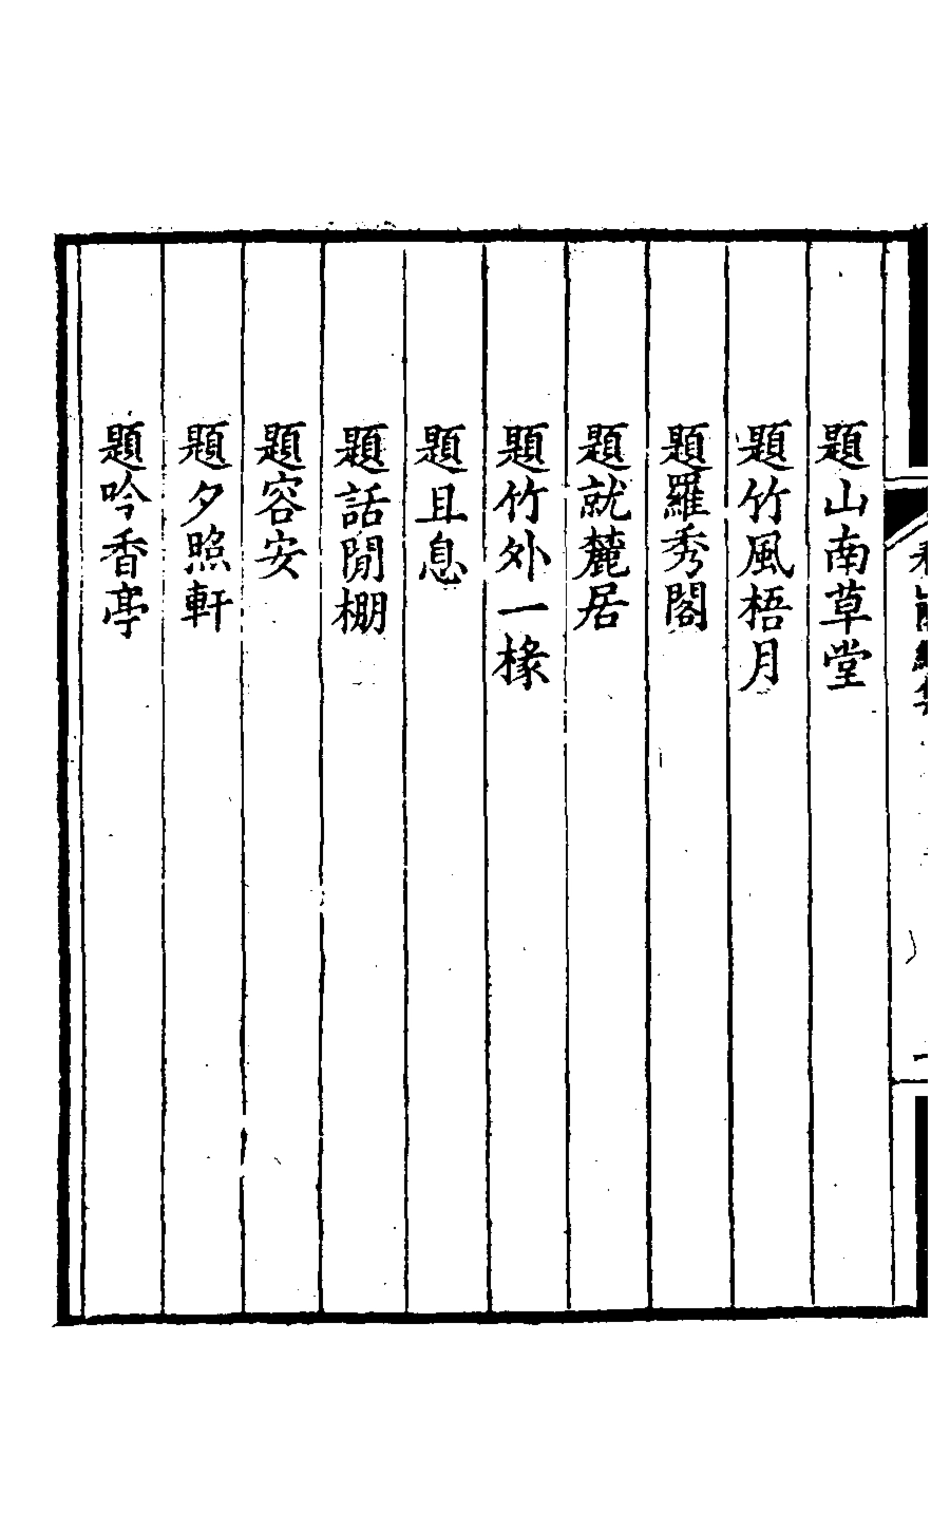 題山南草堂
題竹風梧月
題羅秀閣
題就麓居
題竹外一椽
題且息
題話閒棚
題容安
題夕照軒
題吟香亭